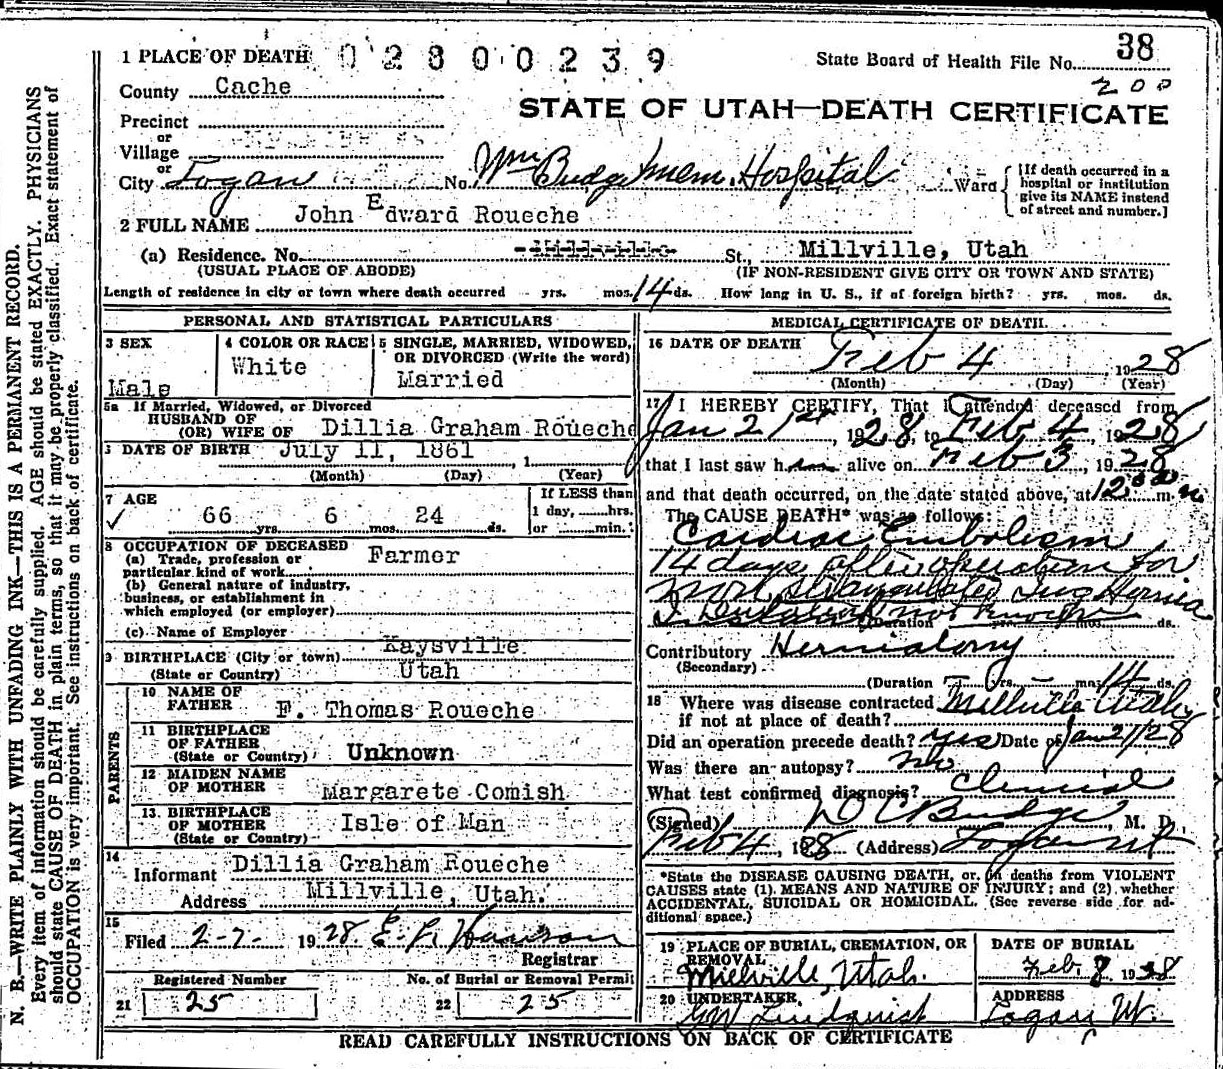 1 PLACE OF DEATH 02800239
State Board of Health File No. 38
200
County Cache
STATE OF UTAH—DEATH CERTIFICATE
Precinct
or
Village
or
City Logan No. Wm Budge Mem. Hospital St., Ward
{If death occurred in a hospital or institution give its NAME instead of street and number.]
2 FULL NAME John Edward Roueche
(a) Residence. No. Millville St., Millville, Utah
(USUAL PLACE OF ABODE) (IF NON-RESIDENT GIVE CITY OR TOWN AND STATE)
Length of residence in city or town where death occurred yrs. mos. 14 ds. How long in U. S., if of foreign birth? yrs. mos. ds.
PERSONAL AND STATISTICAL PARTICULARS
3 SEX
Male
4 COLOR OR RACE
White
5 SINGLE, MARRIED, WIDOWED, OR DIVORCED (Write the word)
Married
5a If Married, Widowed, or Divorced
HUSBAND OF
(OR) WIFE OF Dillia Graham Roueche
DATE OF BIRTH July 11, 1861, 1
(Month) (Day) (Year)
7 AGE
✓ 66 yrs. 6 mos. 24 ds.
If LESS than
1 day, hrs.
or min.
8 OCCUPATION OF DECEASED
(a) Trade, profession or
particular kind of work Farmer
(b) General nature of industry,
business, or establishment in
which employed (or employer)
(c) Name of Employer
9 BIRTHPLACE (City or town) Kaysville
(State or Country) Utah
PARENTS
10 NAME OF
FATHER F. Thomas Roueche
11 BIRTHPLACE
OF FATHER
(State or Country) Unknown
12 MAIDEN NAME
OF MOTHER Margarete Comish
13. BIRTHPLACE
OF MOTHER
(State or Country) Isle of Man
14
Informant Dillia Graham Roueche
Address Millville, Utah.
15
Filed 2-7- 1928 E. P. Hanson
Registrar
Registered Number
21 25
No. of Burial or Removal Permit
22 25
MEDICAL CERTIFICATE OF DEATH.
16 DATE OF DEATH
Feb 4, 1928
(Month) (Day) (Year)
17 I HEREBY CERTIFY, That I attended deceased from
Jan 21st, 1928, to Feb 4, 1928
that I last saw him alive on Feb 3, 1928
and that death occurred, on the date stated above, at 12 m.
The CAUSE DEATH* was as follows:
Cardiac Embolism
14 days after operation for
strangulated Ing Hernia
not known
(Duration yrs. mos. ds.
Contributory Herniotomy
(Secondary)
(Duration yrs. – mos. 14 ds.
18 Where was disease contracted
if not at place of death? Millville Utah
Did an operation precede death? yes Date of Jan 21/28
Was there an autopsy? no
What test confirmed diagnosis? Clinical
(Signed) D C Budge, M. D.,
Feb 4, 1928 (Address) Logan Ut
*State the DISEASE CAUSING DEATH, or, in deaths from VIOLENT
CAUSES state (1) MEANS AND NATURE OF INJURY; and (2) whether
ACCIDENTAL, SUICIDAL OR HOMICIDAL. (See reverse side for ad-
ditional space.)
19 PLACE OF BURIAL, CREMATION, OR
REMOVAL
Millville, Utah.
DATE OF BURIAL
Feb. 8 1928
20 UNDERTAKER
GW Lindquist
ADDRESS
Logan Ut.
READ CAREFULLY INSTRUCTIONS ON BACK OF CERTIFICATE
N. B.—WRITE PLAINLY WITH UNFADING INK—THIS IS A PERMANENT RECORD.
Every item of information should be carefully supplied. AGE should be stated EXACTLY. PHYSICIANS
should state CAUSE OF DEATH in plain terms, so that it may be properly classified. Exact statement of
OCCUPATION is very important. See instructions on back of certificate.